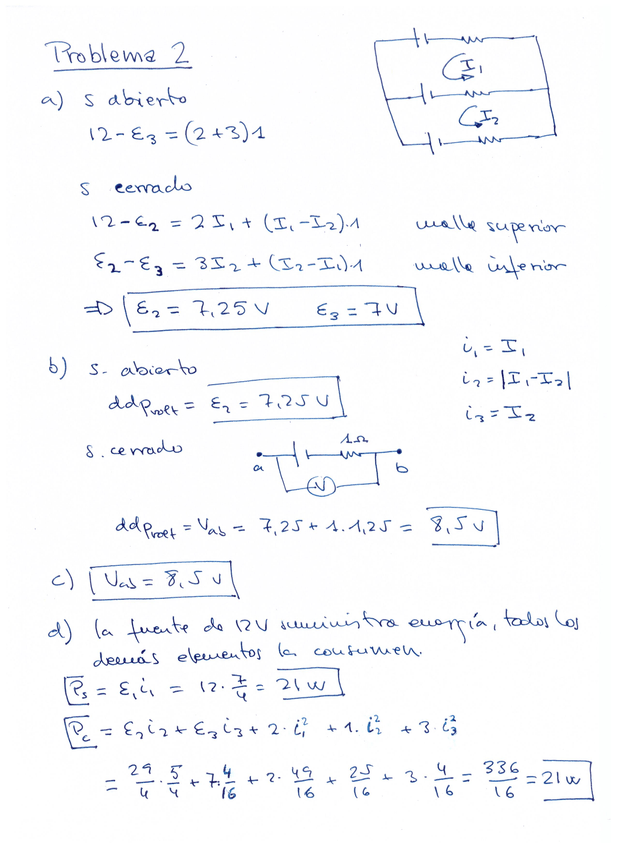 Problema 2
a) s abierto
12 - ε₃ = (2+3)1
I₁
I₂
s cerrado
12 - ε₂ = 2I₁ + (I₁ - I₂)·1 malla superior
ε₂ - ε₃ = 3I₂ + (I₂ - I₁)·1 malla inferior
⇒ ε₂ = 7,25 V ε₃ = 7V
i₁ = I₁
i₂ = |I₁ - I₂|
i₃ = I₂
b) s. abierto
ddp_volt = ε₂ = 7,25 V
s. cerrado
a 1Ω V b
ddp_volt = V_ab = 7,25 + 1·1,25 = 8,5 V
c) V_ab = 8,5 V
d) la fuente de 12V suministra energía, todos los
demás elementos la consumen.
P_s = ε₁i₁ = 12·7/4 = 21 w
P_c = ε₂i₂ + ε₃i₃ + 2·i₁² + 1·i₂² + 3·i₃²
= 29/4·5/4 + 7·4/16 + 2·49/16 + 25/16 + 3·4/16 = 336/16 = 21 w